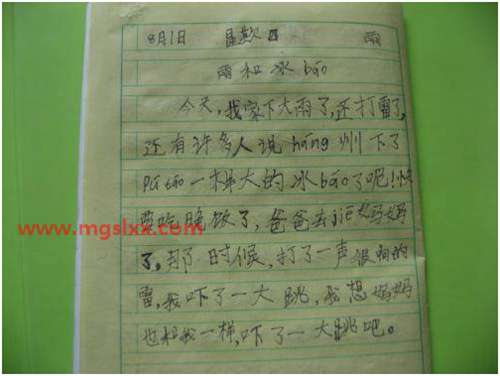 8月1日 星期四 雨
雨和冰báo
今天,我家下大雨了,还打雷了,
还有许多人说háng州下了
Pú táo一样大的冰báo了呢!快
要吃晚饭了,爸爸去jiē妈妈
了,那时候,打了一声很响的
雷,我吓了一大跳,我想妈妈
也和我一样,吓了一大跳吧。
www.mgslxx.com